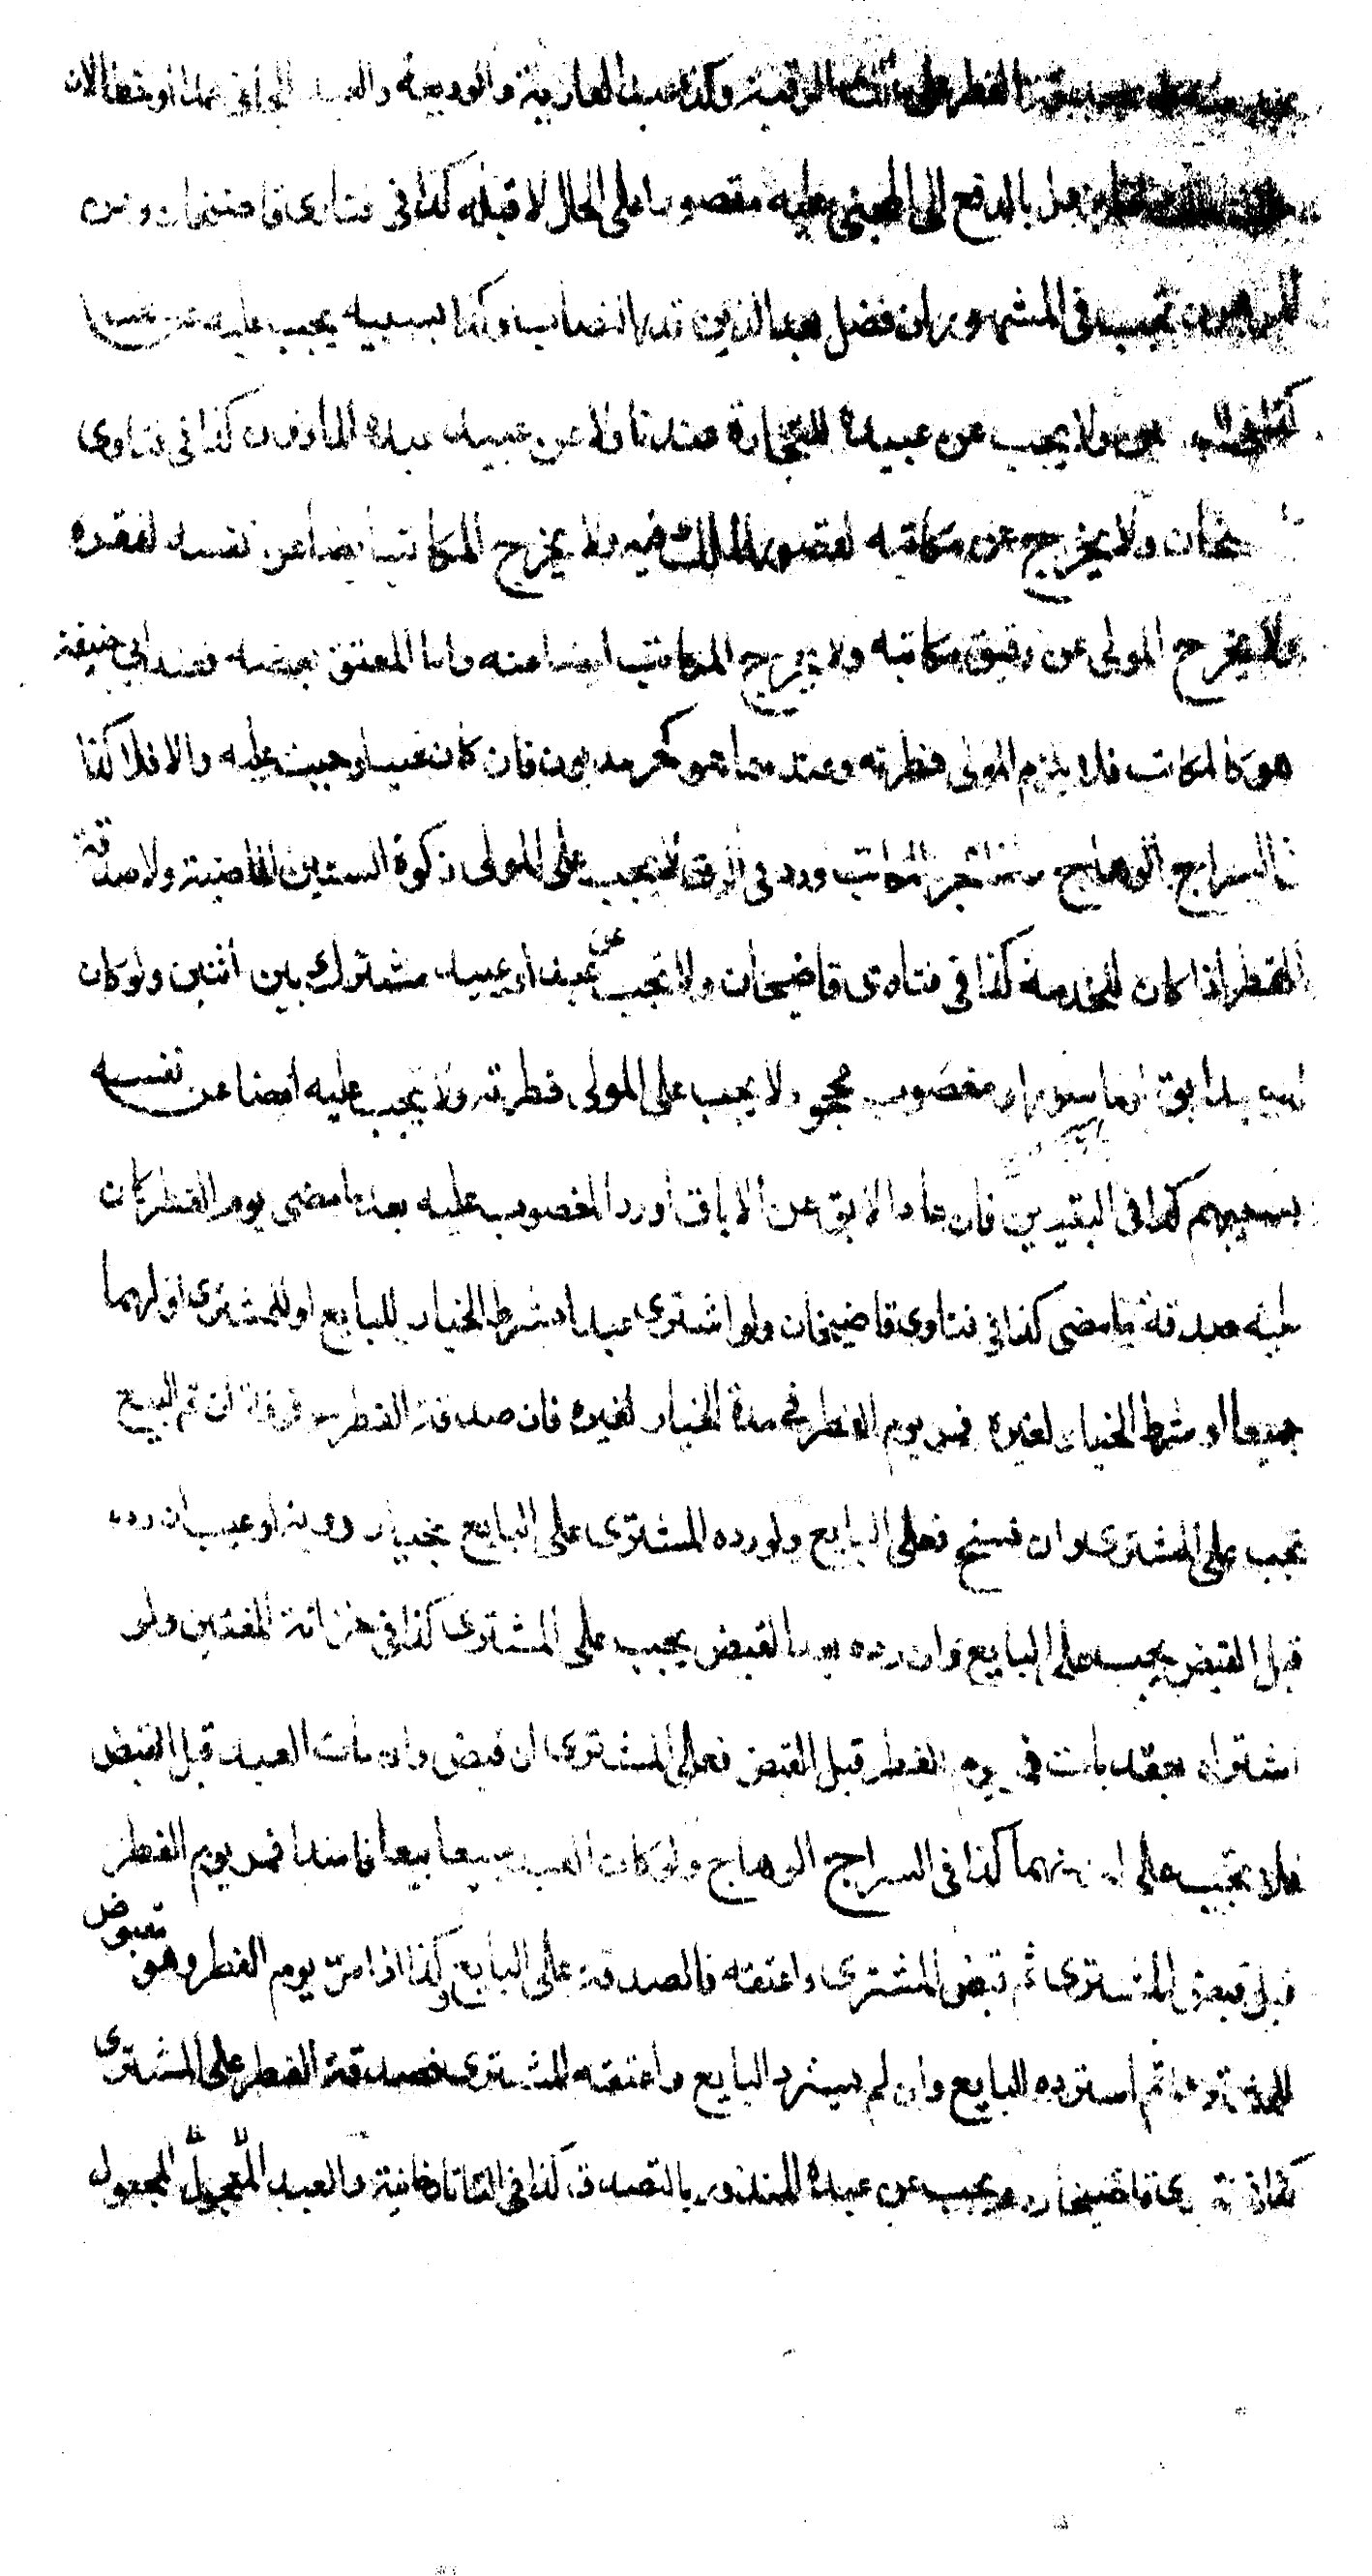 صدقة الفطر على مالك الرقبة وكذا عبد العارية والوديعة والعبد الجاني عمدا أو خطأ لان
بالدفع الى المجنى عليه مقصورا على الحال لا قبله كذا في فتاوى قاضيخان وعن
المرهون تجب في المشهور ان فضل بعد الدين قدر النصاب وكذا بسببه يجب عليه عن نفسه
كذا في ولا يجب عن عبيده للتجارة عندنا ولا عن عبيد عبده المأذون كذا في فتاوى
ولا يخرج عن مكاتبه لقصور الملك فيه ولا يخرج المكاتب ايضا عن نفسه لفقره
ولا يخرج المولى عن رقيق مكاتبه ولا يخرج المكاتب ايضا عنه واما المعتق بعضه فعند ابي حنيفة
هو كالمكاتب فلا يلزم المولى فطرته وعندهما هو كحر مديون فان كان غنيا وجبت عليه والا فلا كذا
في السراج الوهاج عجز المكاتب ورد في الرق لا يجب على المولى زكوة السنين الماضية ولا صدقة
الفطر اذا كان للخدمة كذا في فتاوى قاضيخان ولا تجب عن عبد أو عبيد مشترك بين اثنين ولو كان
آبق او مغصوب مجحود لا يجب على المولى فطرته ولا يجب عليه ايضا عن نفسه
بسببهم كذا في فان عاد الآبق عن الاباق أو رد المغصوب عليه بعد ما مضى يوم الفطر كان
عليه صدقة ما مضى كذا في فتاوى قاضيخان ولو اشترى عبدا بشرط الخيار للبايع او للمشترى او لهما
جميعا او شرط الخيار لغيره فمر يوم الفطر في مدة الخيار لغيره فان صدقة الفطر موقوفة ان تم البيع
تجب على المشترى وان فسخ فعلى البايع ولو رده المشترى على البايع بخيار روية او عيب ان رده
قبل القبض يجب على البايع وان رده بعد القبض يجب على المشترى كذا في خزانة المفتين ولو
اشتراه بعقد بات في يوم الفطر قبل القبض فعلى المشترى ان قبض وان مات العبد قبل القبض
فلا تجب على منهما كذا في السراج الوهاج ولو كان العبد مبيعا بيعا فاسدا فمر يوم الفطر
قبل قبض المشترى ثم قبض المشترى واعتقه فالصدقة على البايع وكذا اذا مر يوم الفطر وهو مقبوض
ثم استرده البايع وان لم يسترد البايع واعتقه المشترى فصدقة الفطر على المشترى
كذا في قاضيخان ويجب عن عبده المنذور بالتصدق كذا في التاتارخانية والعبد المجعول